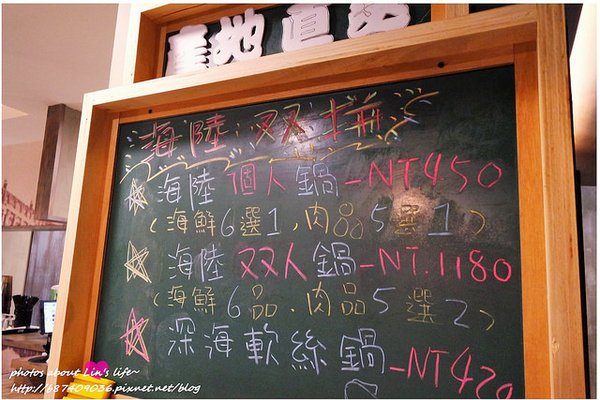 產地直送
海陸双拼
海陸個人鍋-NT450
(海鮮6選1,肉品5選1)
海陸双人鍋-NT.1180
(海鮮6品,肉品5選2)
深海軟絲鍋-NT420
photos about Lin's life~
http://b87409036.pixnet.net/blog